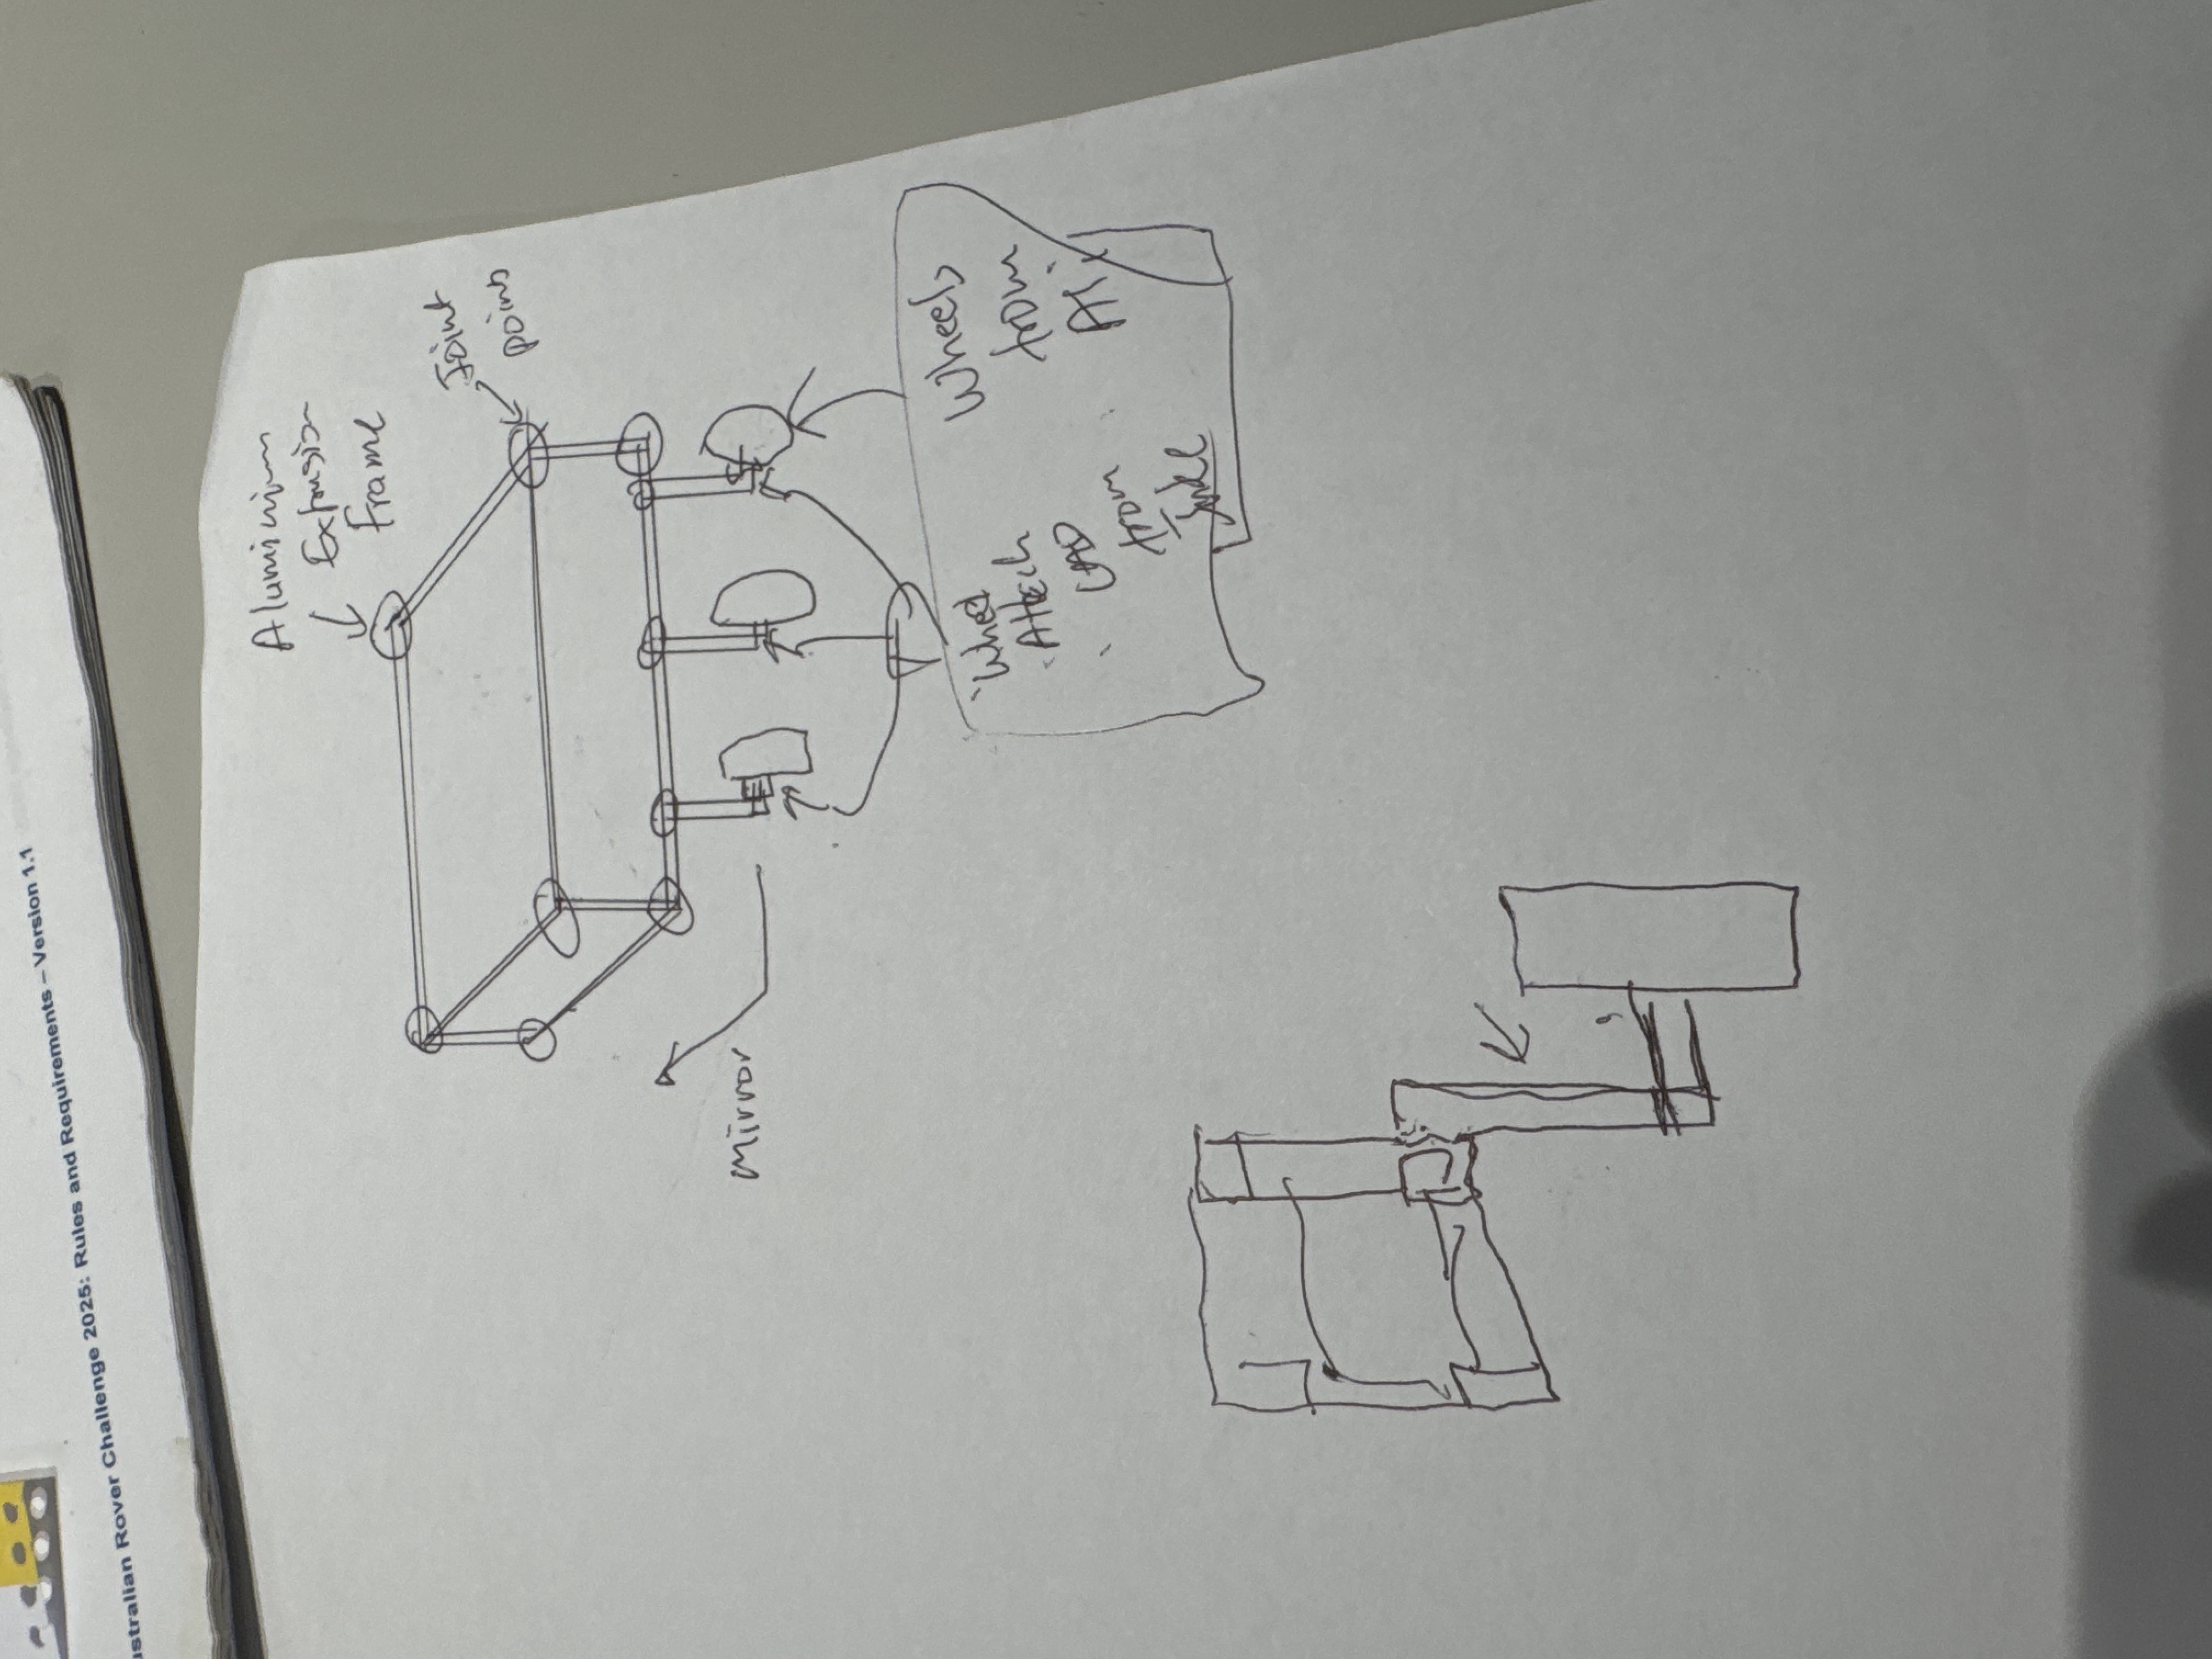 ustralian Rover Challenge 2025: Rules and Requirements – Version 1.1
Aluminium
Extrusion
Frame
Joint
points
Mirror
Wheel
Attach
CAD
from
Wheels
from